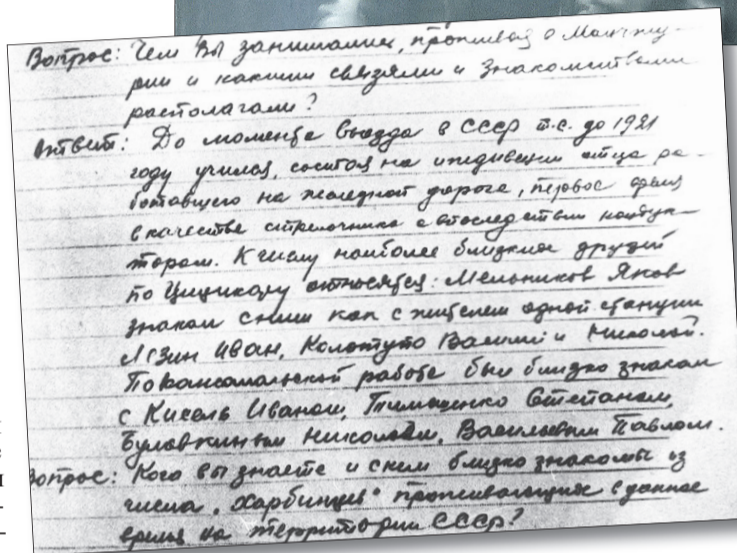 Вопрос: Чем Вы занимались, проживая в Манчжу-
рии и какими связями и знакомствами
располагали?
Ответ: До момента выезда в СССР т.е. до 1921
году учился, состоя на иждивении отца ра-
ботавшего на железной дороге, первое время
в качестве стрелочника а впоследствии кондук-
тором. К числу наиболее близких друзей
по Цицикару относятся: Мельников Яков
знаком с ним как с жителем одной станции
Иван, Колотуто Василий и Николай.
По комсомольской работе был близко знаком
с Кисель Иваном, Тимошенко Степаном,
Булавкиным Николаем, Васильевым Павлом.
Вопрос: Кого вы знаете и с кем близко знакомы из
числа „Харбинцев" проживающих в данное
время на территории СССР?